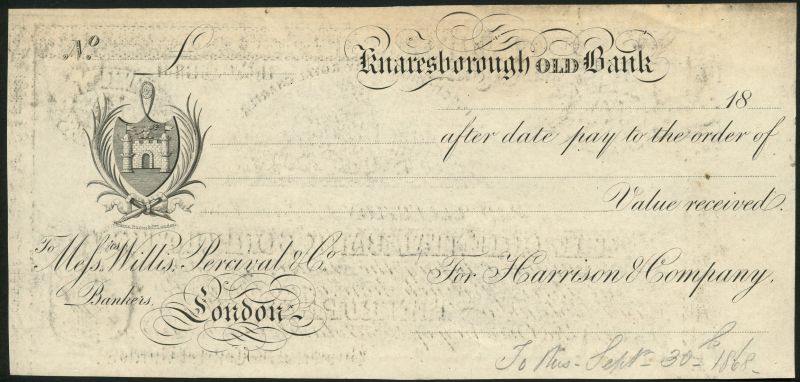 No £
Knaresborough OLD Bank
18
after date pay to the order of
Value received.
To Messrs Willis, Percival, & Co.
Bankers,
London.
For Harrison & Company.
Septr 30 1868